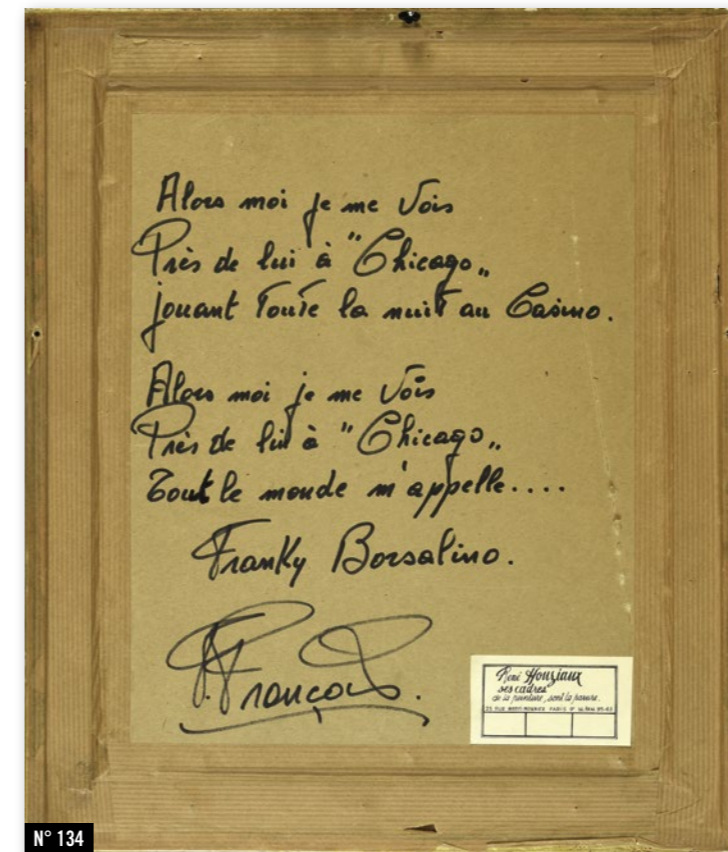 Alors moi je me Vois
Près de lui à "Chicago„
jouant Toute la nuit au Casino.
Alors moi je me Vois
Près de lui à "Chicago„
Tout le monde m'appelle....
Franky Borsalino.
François.
René Houziaux
ses cadres
de la peinture, sont la parure.
PARIS
N° 134